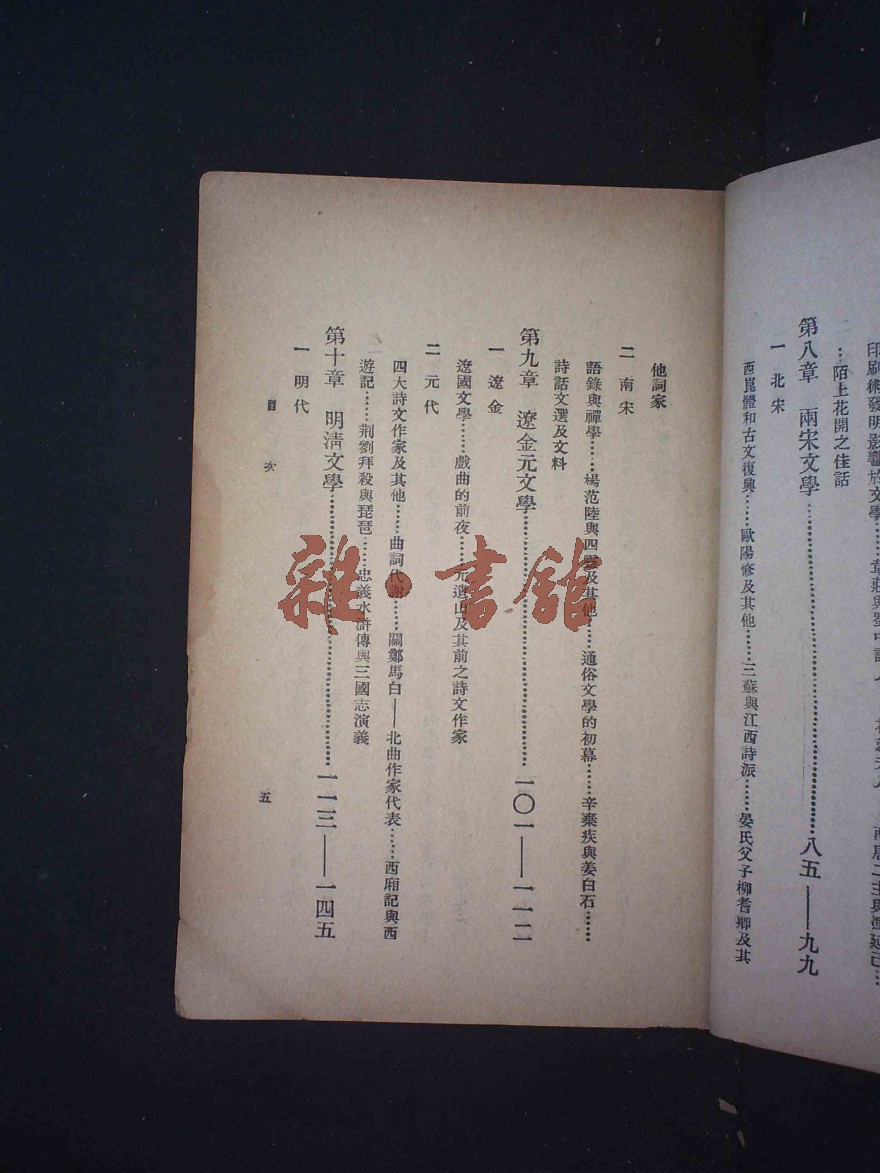 印刷術發明影響於文學……韋莊與
南唐二主與馮延己…
…陌上花開之佳話
第八章 兩宋文學……八五——九九
一 北宋
西崑體和古文復興……歐陽修及其他……三蘇與江西詩派……晏氏父子柳耆卿及其
他詞家
二 南宋
語錄與禪學……楊范陸與四靈及其他……通俗文學的初幕……辛棄疾與姜白石……
詩話文選及文料
第九章 遼金元文學……一〇一——一一二
一 遼金
遼國文學……戲曲的前夜……元遺山及其前之詩文作家
二 元代
四大詩文作家及其他……曲詞代謝……關鄭馬白——北曲作家代表……西廂記與西
遊記……荆劉拜殺與琵琶……忠義水滸傳與三國志演義
第十章 明清文學……一一三——一四五
一 明代
目次
五
雜·書館